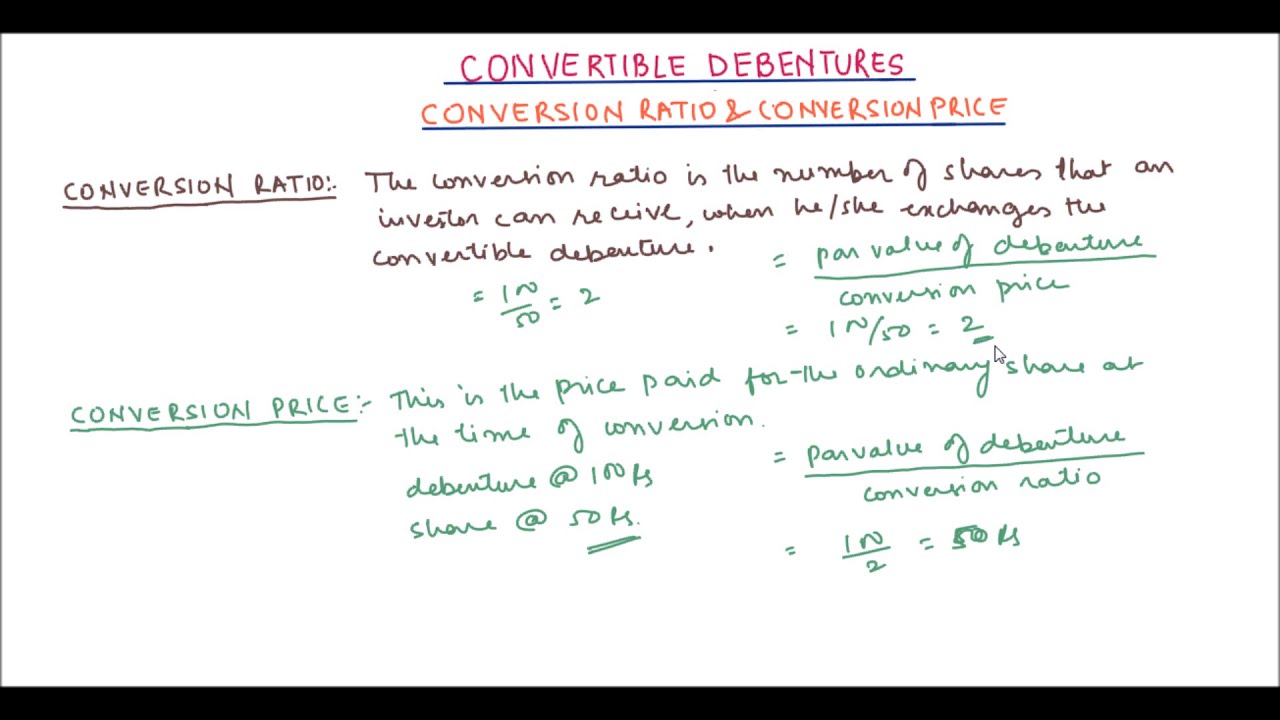 CONVERTIBLE DEBENTURES
CONVERSION RATIO & CONVERSION PRICE
CONVERSION RATIO:- The conversion ratio is the number of shares that an
investor can receive, when he/she exchanges the
convertible debenture.
= 100/50 = 2
= par value of debenture / conversion price
= 100/50 = 2
CONVERSION PRICE:- This is the price paid for the ordinary share at
the time of conversion.
debenture @ 100 Rs
share @ 50 Rs.
= par value of debenture / conversion ratio
= 100/2 = 50 Rs